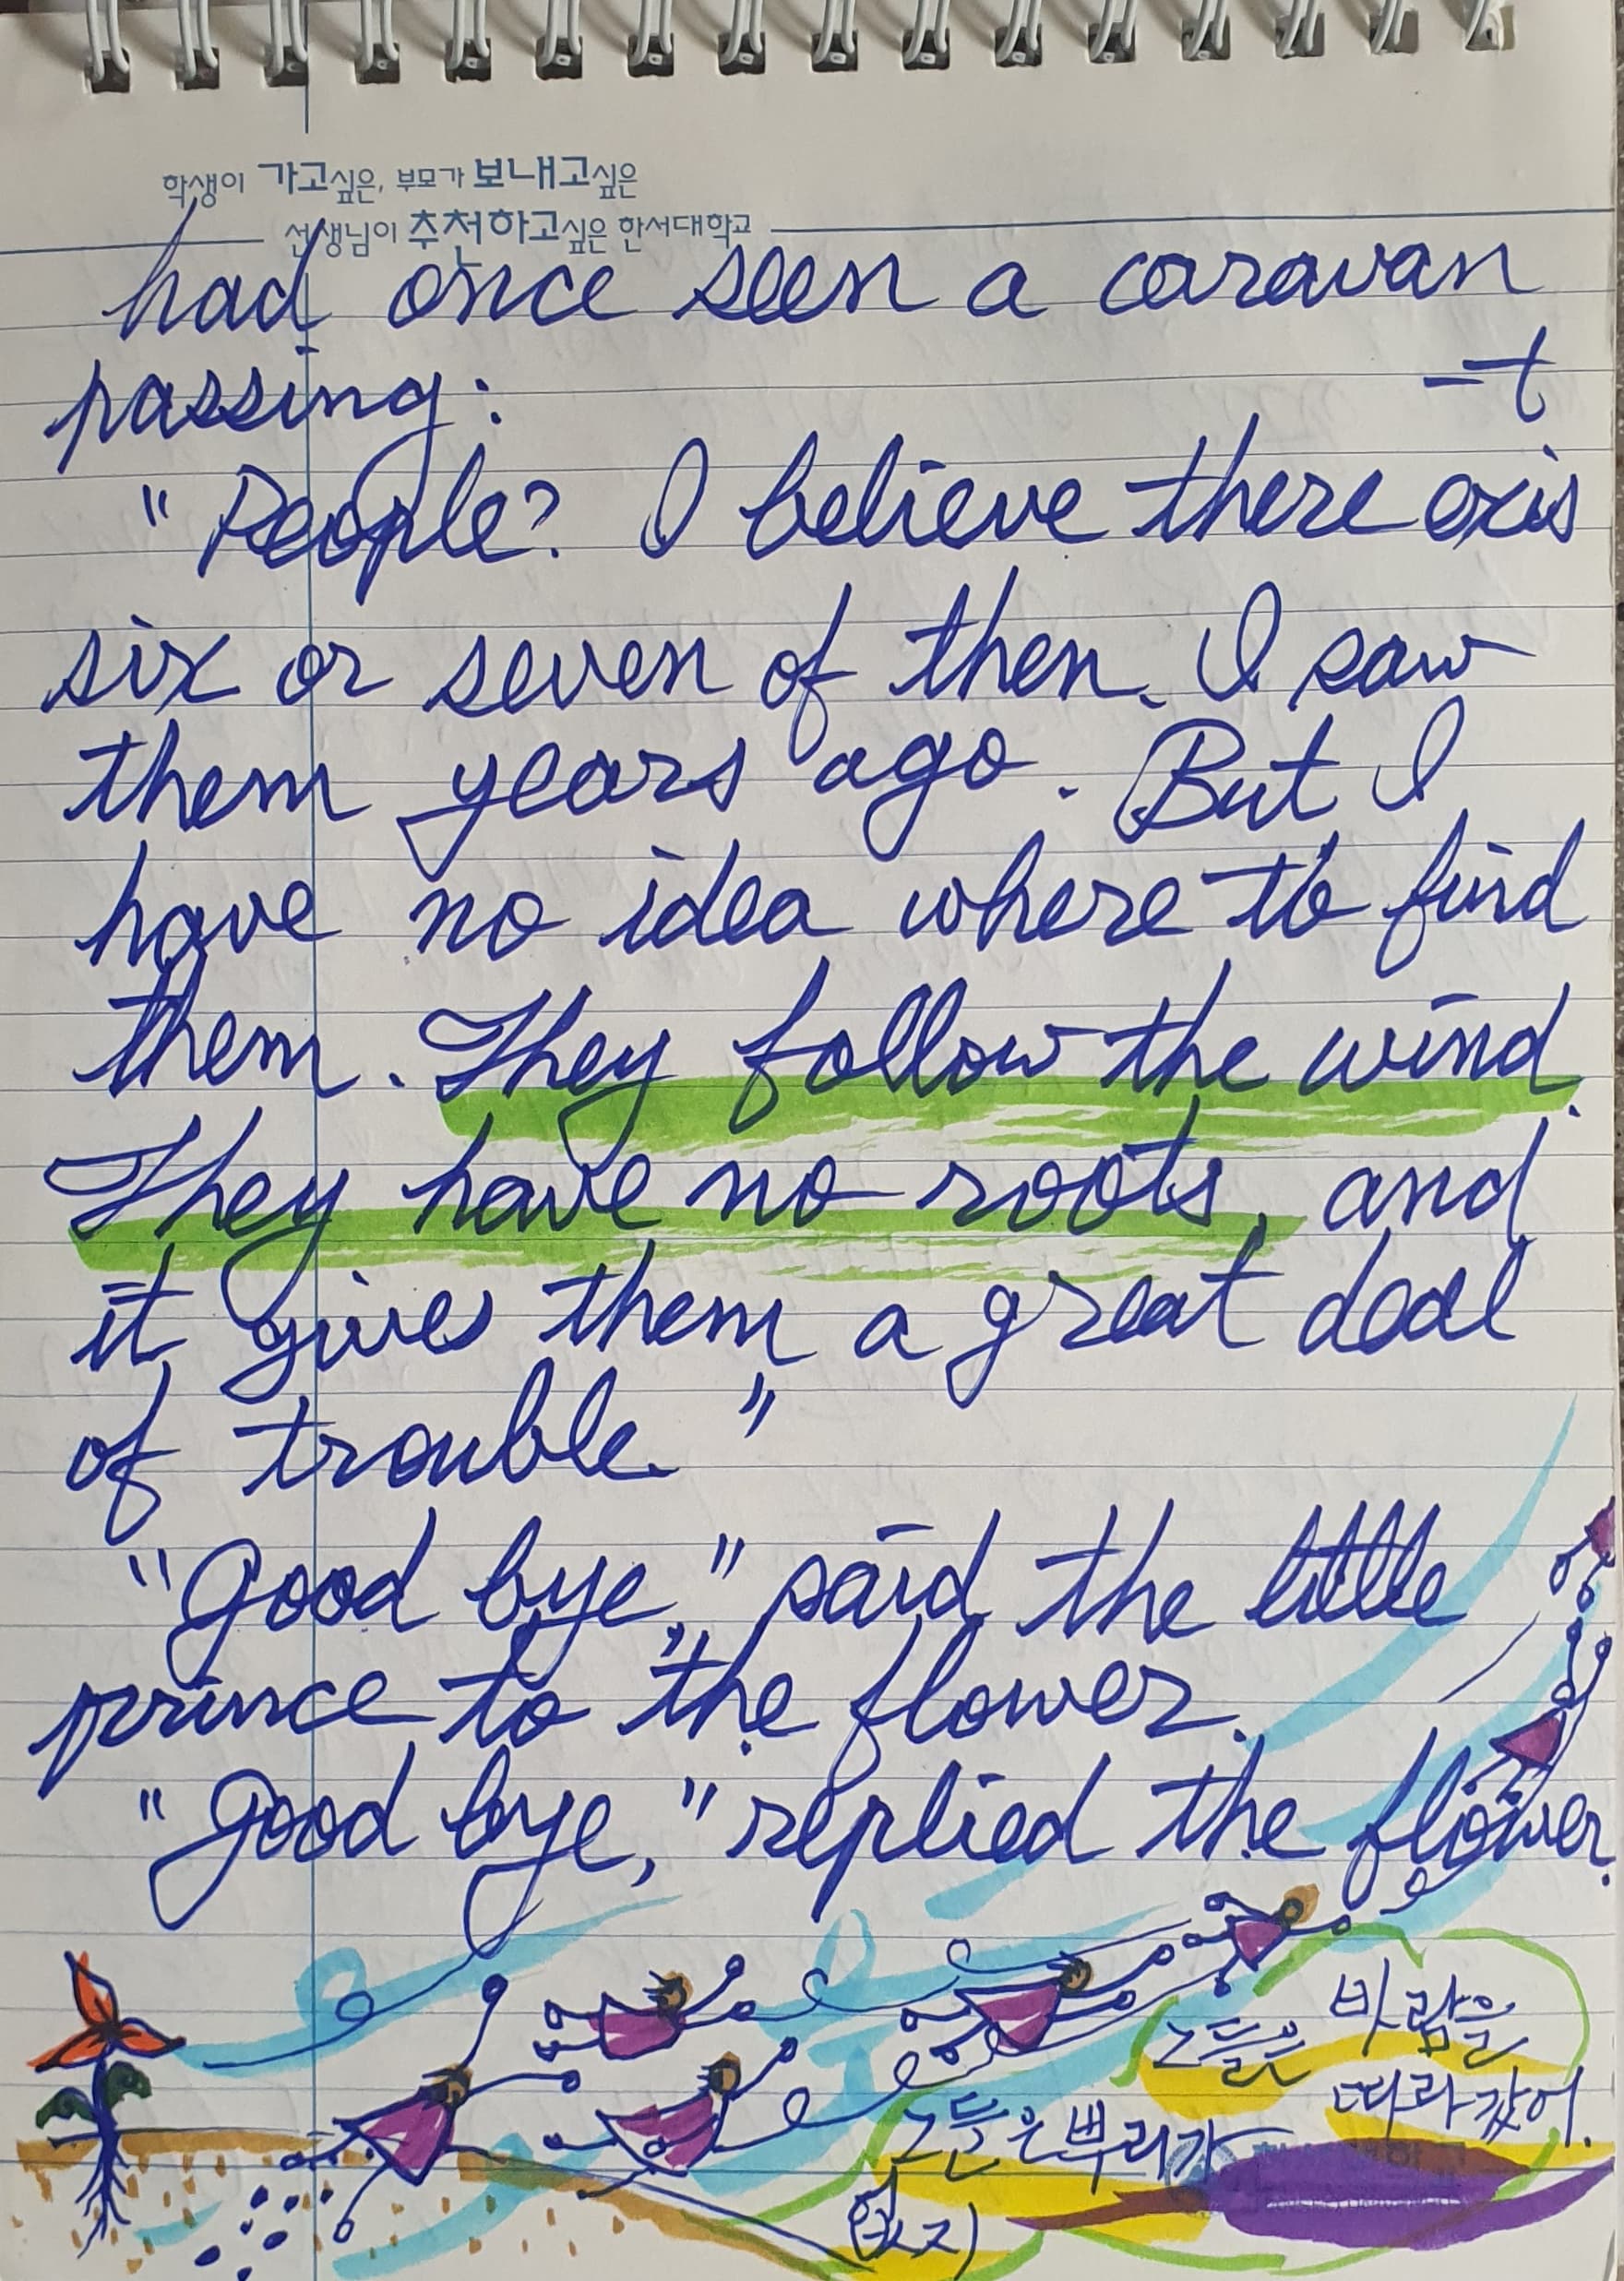 학생이 가고싶은, 부모가 보내고싶은
선생님이 추천하고싶은 한서대학교
had once seen a caravan
passing:
"People? I believe there exis-t
six or seven of then. I saw
them years ago. But I
have no idea where to find
them. They follow the wind.
They have no roots, and
it gives them a great deal
of trouble."
"Good bye," said the little
prince to the flower.
"Good bye," replied the flower.
그들은 바람을
따라 갔어.
그들은 뿌리가
없지